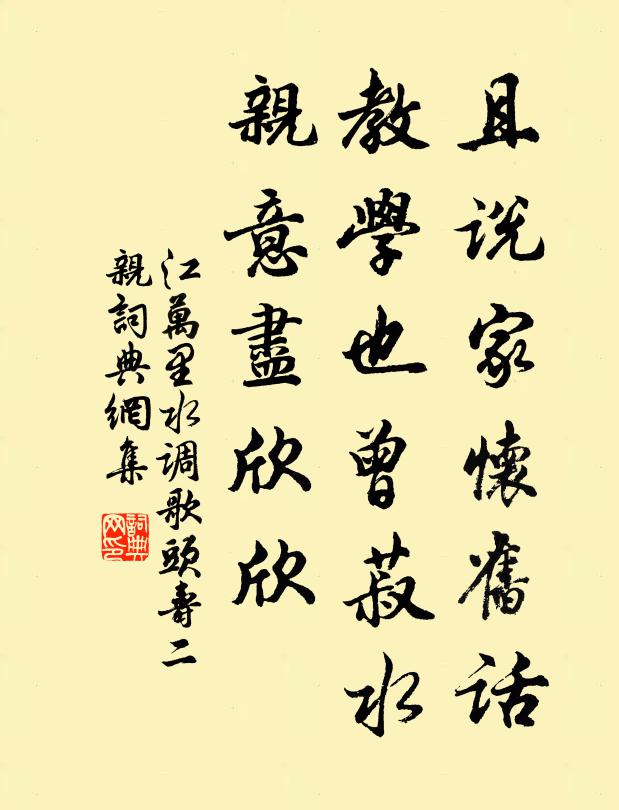 且说家懷舊話
教學也曾菽水
親意盡欣欣
江萬里水调歌頭壽二
親詞典網集
詞典
网印